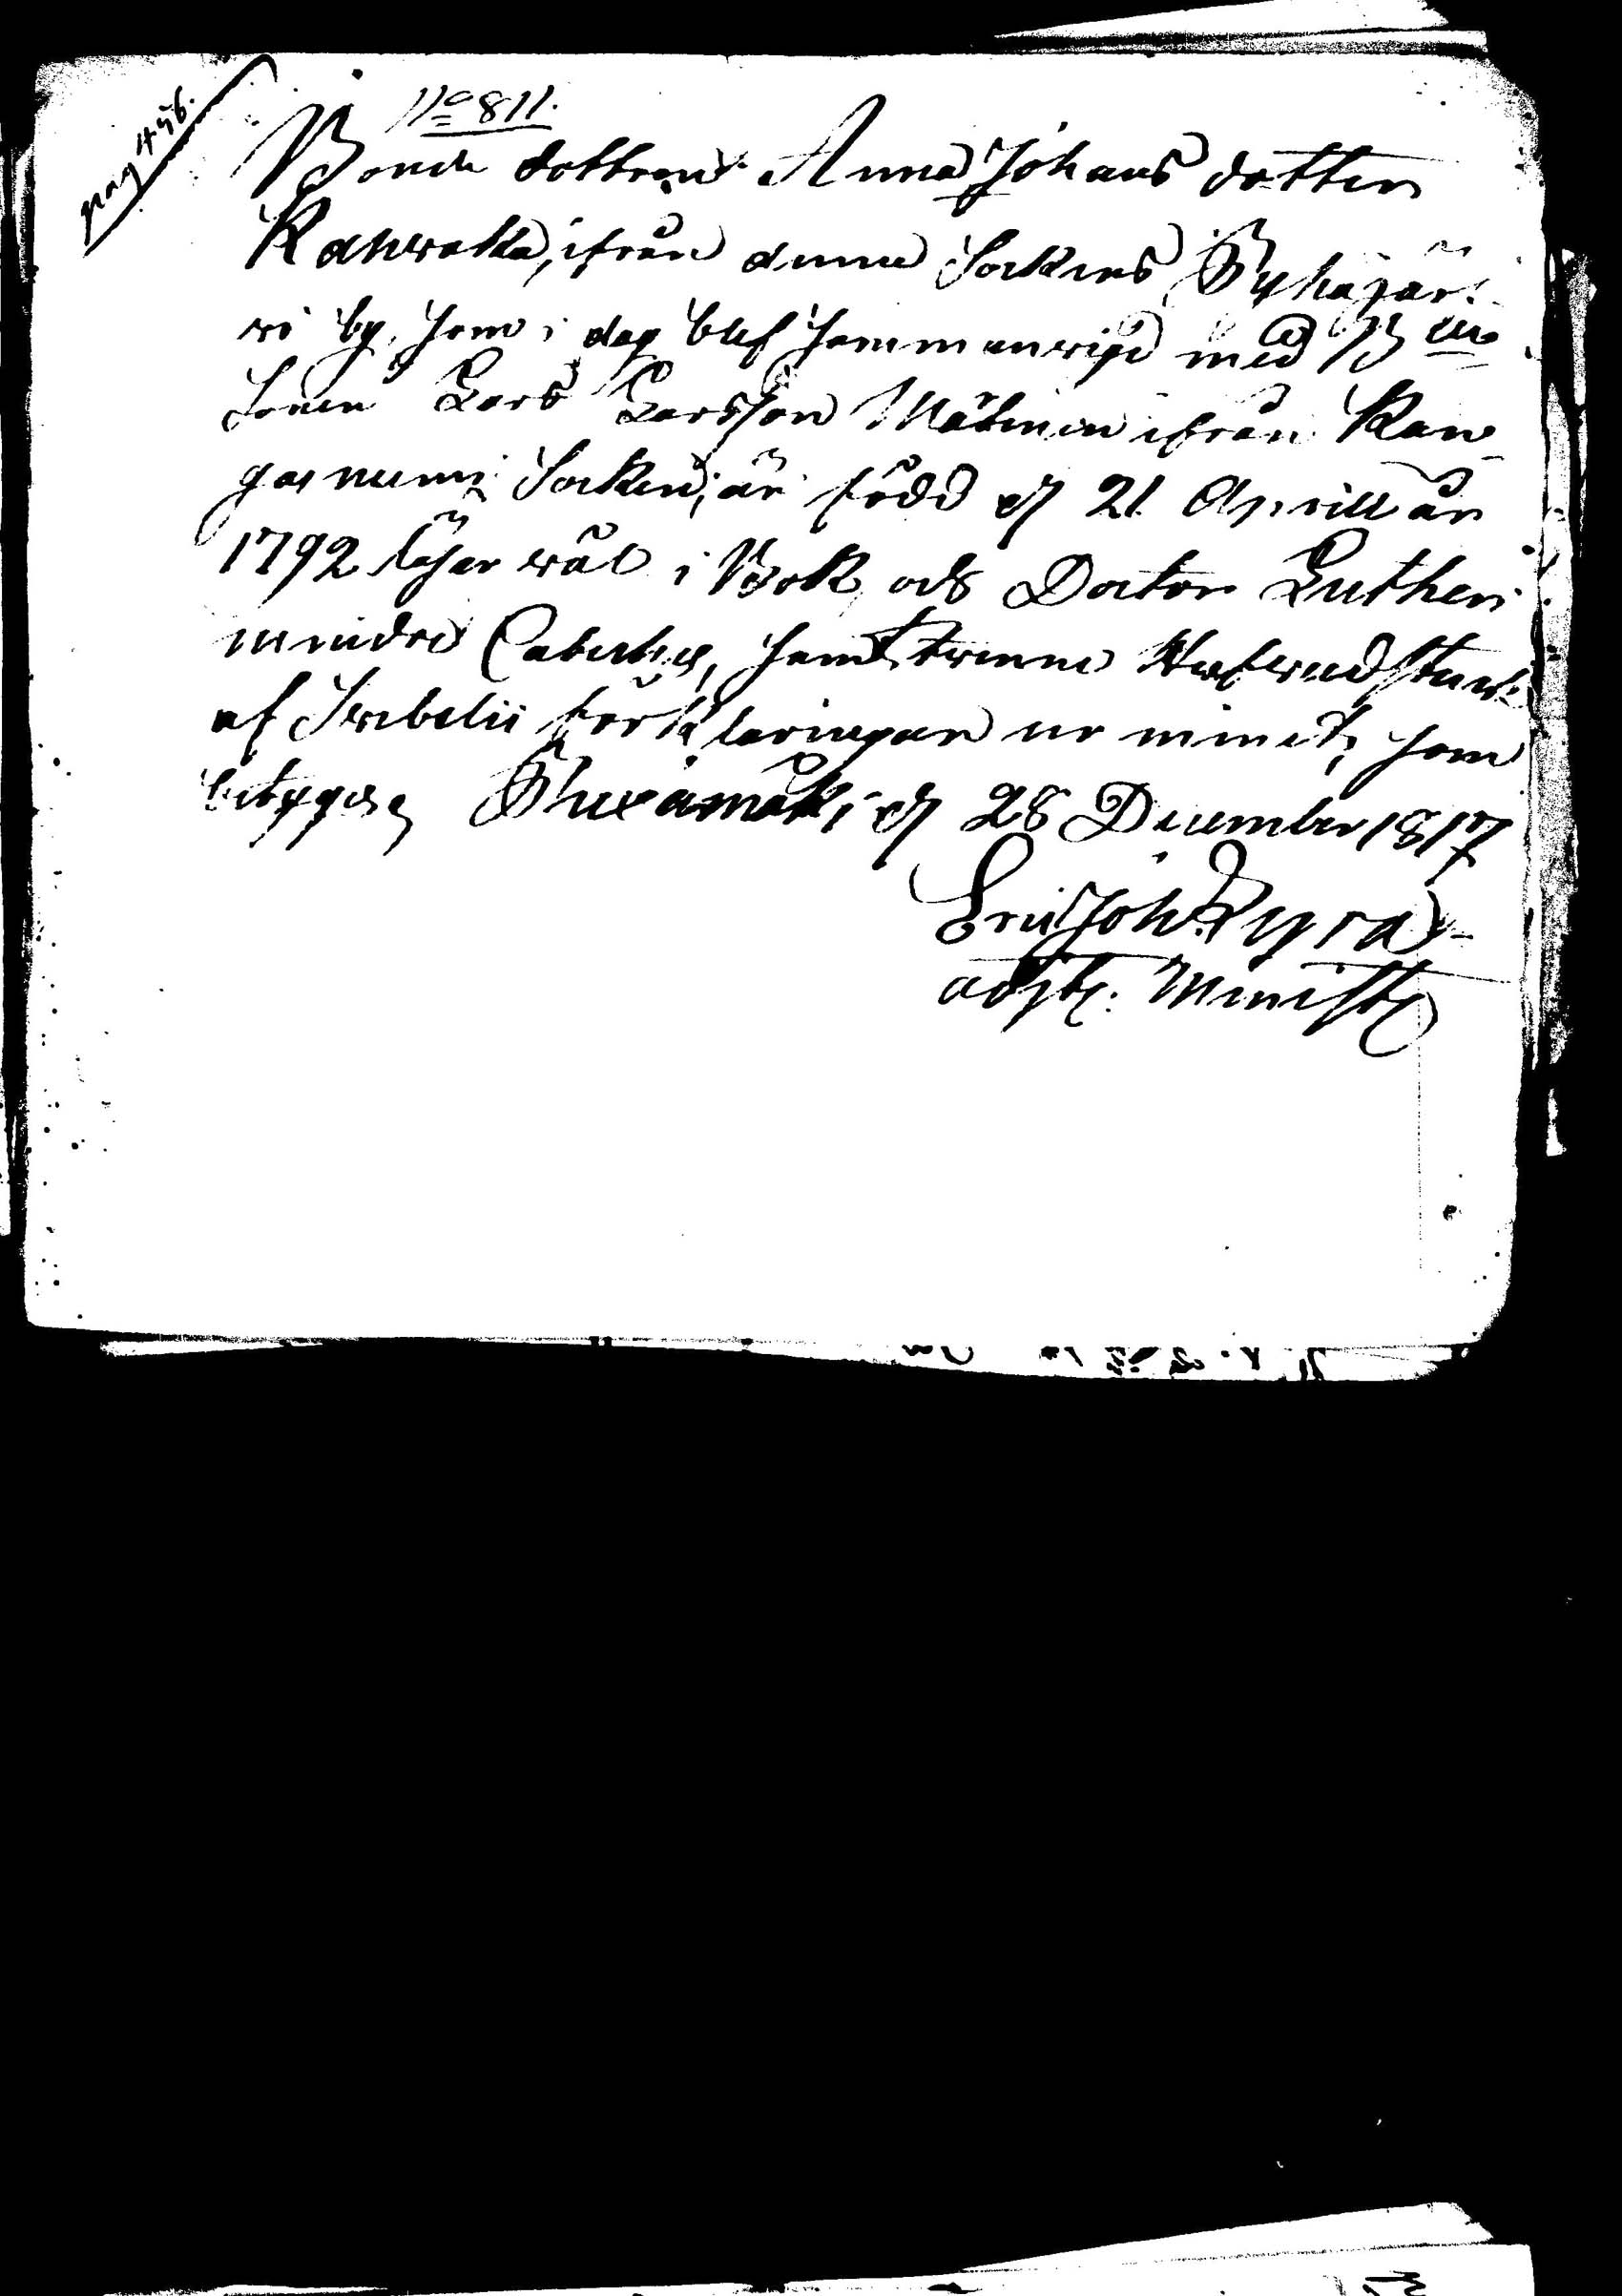 pag 456.
No 811.
Bonde dottren Anna Johans dotter
Kahwatta, ifrån denna Sockens Pyhäjär-
wi by, som i dag blef sammanvigd med Bde
Sonen Lars Larsson Mätinen ifrån Kan-
gasniemi Socken; är född d 21 Aprill år
1792 läser wäl i Bok, och Doctor Lutheri
mindre Cateches, samt trenne Hufwudstuck:
af Swebelii förklaringar ur minnet, som
betygas, Thuxiamäki d 28 December 1817
Eric Joh: Pyra
adj: Minist: